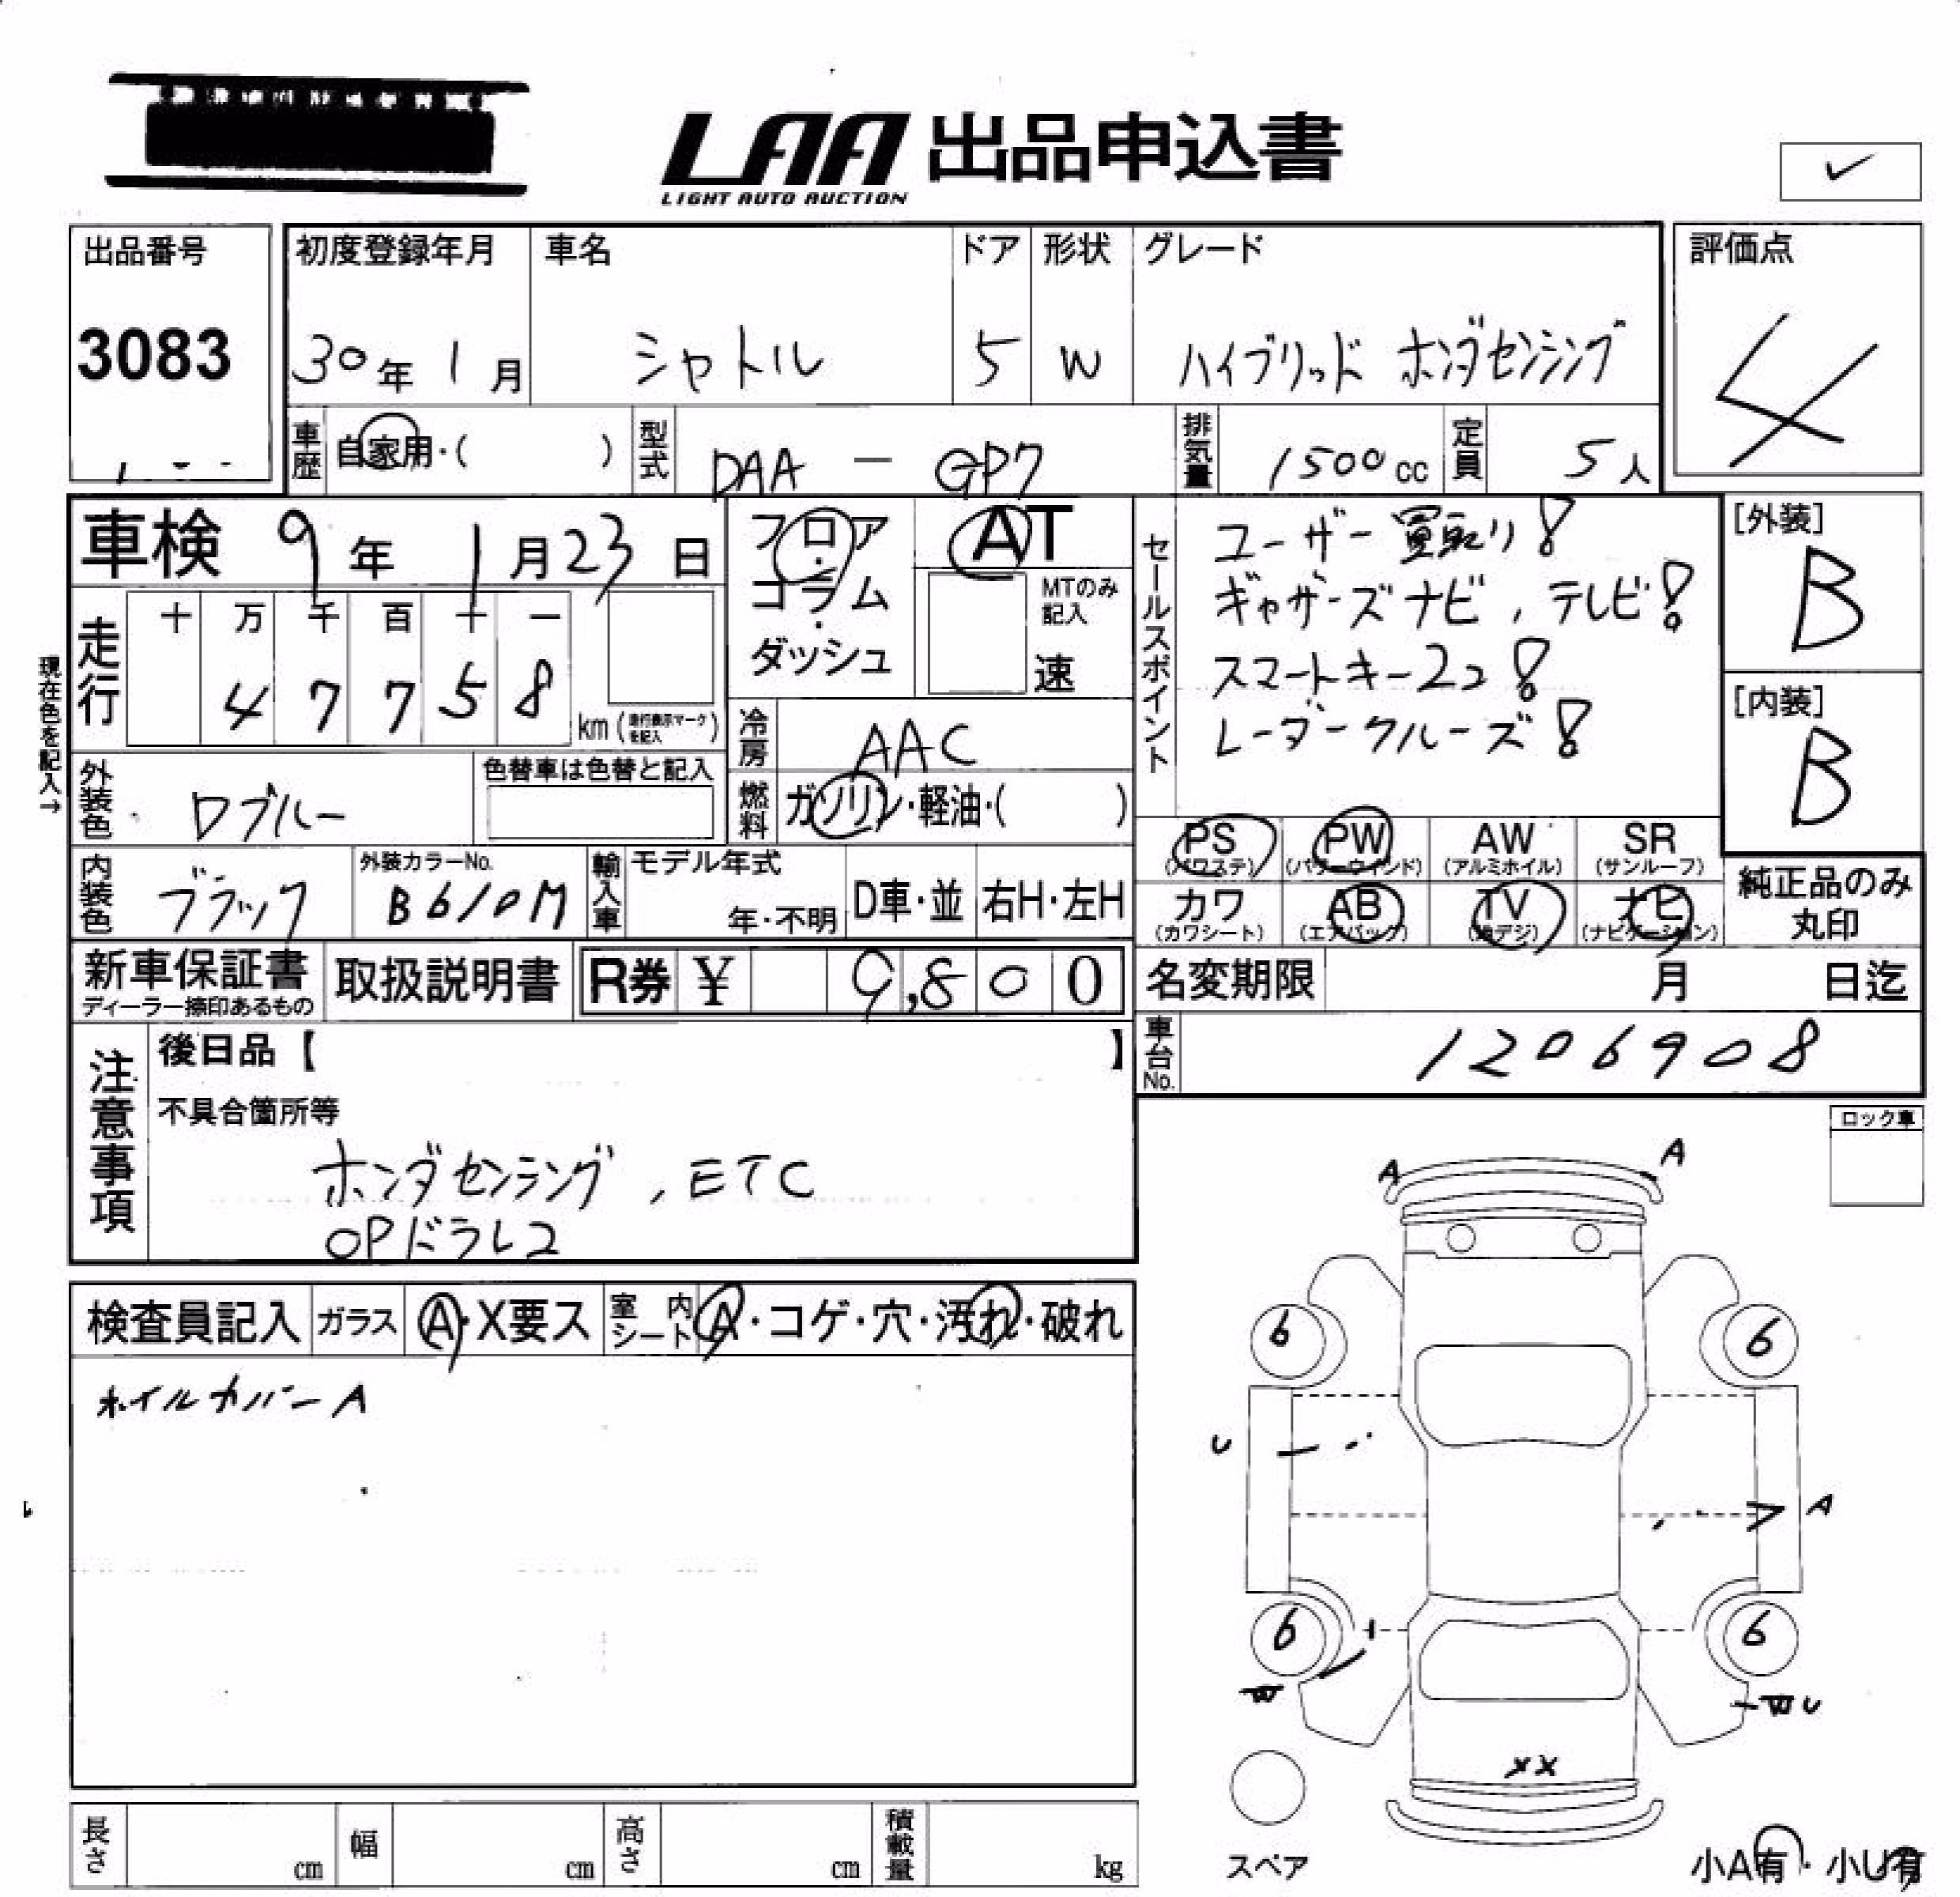 LAA 出品申込書
LIGHT AUTO AUCTION
出品番号
3083
初度登録年月
30年 1月
車名
シャトル
ドア
5
形状
W
グレード
ハイブリッド ホンダセンシング
評価点
4
車歴 自家用・( )
型式 DAA - GP7
排気量 1500cc
定員 5人
車検 9年 1月23日
フロア・コラム・ダッシュ
AT
MTのみ記入
速
セールスポイント
ユーザー買取り!
ギャザーズナビ, テレビ!
スマートキー2コ!
レーダークルーズ!
[外装]
B
[内装]
B
現在色を記入→
走行
十 万 千 百 十 一
4 7 7 5 8
km (走行表示マークを記入)
冷房 AAC
燃料 ガソリン・軽油・( )
外装色 ロブルー
色替車は色替と記入
内装色 ブラック
外装カラーNo.
B610M
輸入車 モデル年式
年・不明
D車・並
右H・左H
PS (パワステ)
PW (パワーウィンド)
AW (アルミホイル)
SR (サンルーフ)
カワ (カワシート)
AB (エアバック)
TV (地デジ)
ナビ (ナビゲーション)
純正品のみ
丸印
新車保証書
ディーラー捺印あるもの
取扱説明書
R券 ¥ 9,800
名変期限 月 日迄
車台No. 1206908
注意事項
後日品【 】
不具合箇所等
ホンダセンシング, ETC
OPドラレコ
ロック車
検査員記入
ガラス A・X要ス
室内シート A・コゲ・穴・汚れ・破れ
ホイルカバーA
A A
6 6
U
A
6 6
W
W U
XX
スペア
小A有・小U有
長さ cm
幅 cm
高さ cm
積載量 kg